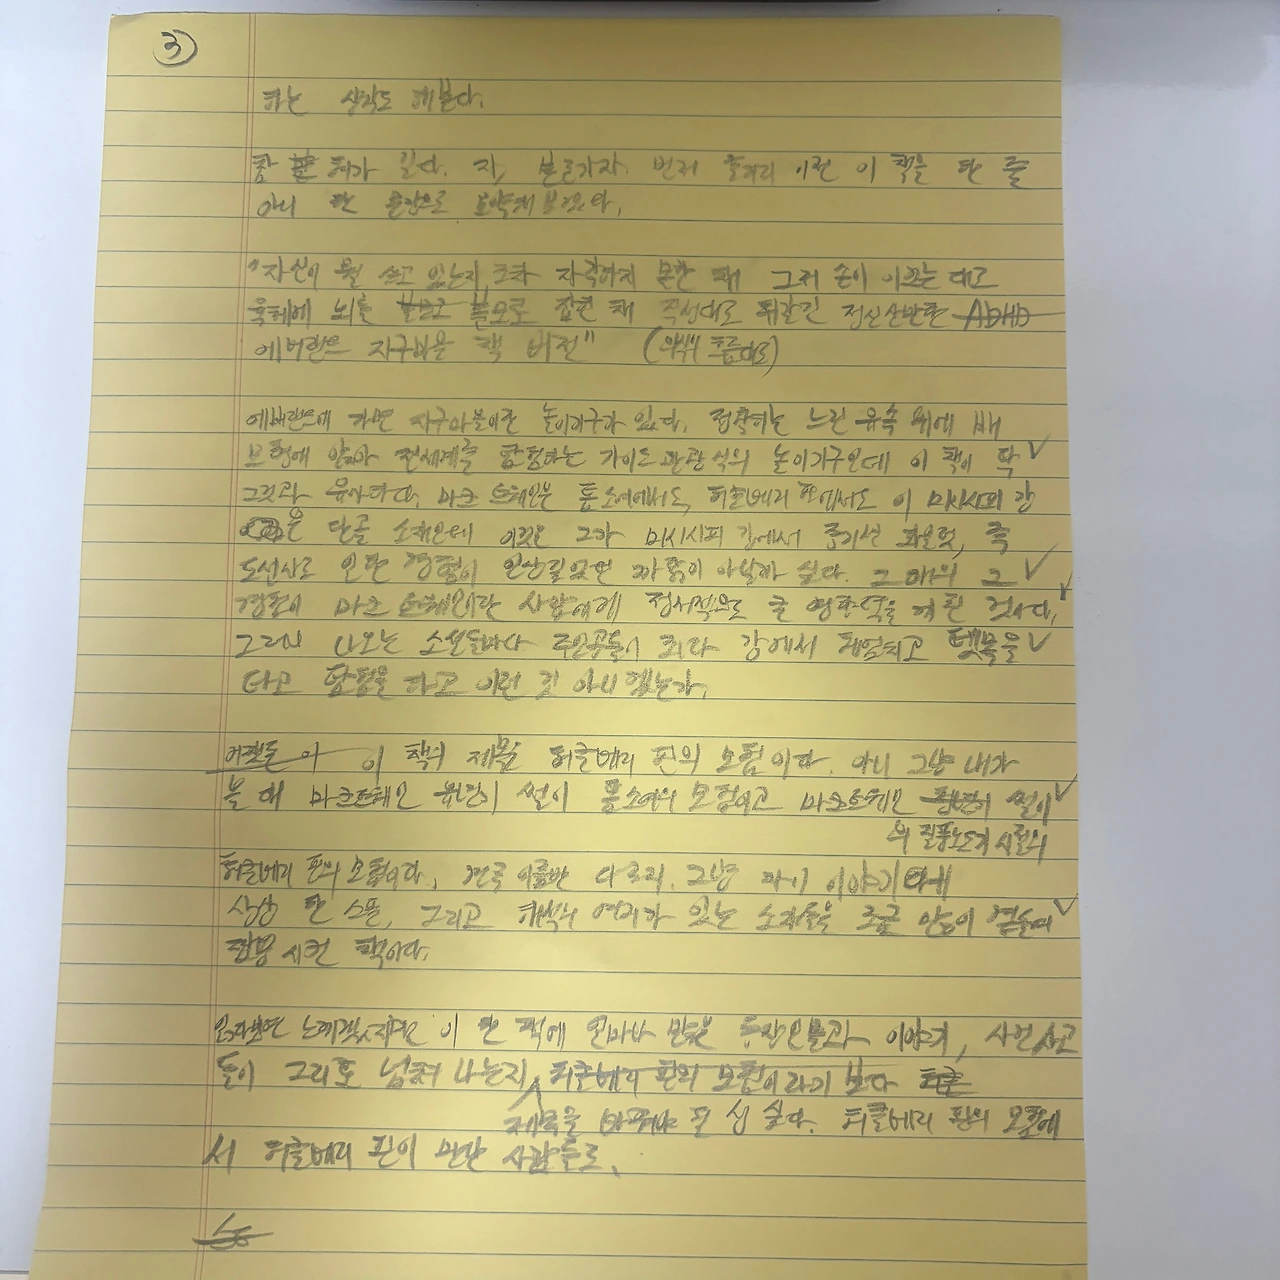 ③
하는 생각도 해본다.
참 허가 길다. 자, 본론가자. 먼저 줄거리 이전 이 책을 한 줄
아니 한 문장으로 요약해 보겠다.
"자신이 뭘 쓰고 있는지 조차 자각하지 못한 채 그저 손이 이끄는 대로
육체에 뇌를 볼모로 잡힌 채 즉석대로 휘갈긴 정신산만한 ADHD
에버랜드 지구마을 책 버전" (의식의 흐름대로)
에버랜드에 가면 지구마을이란 놀이기구가 있다. 정착하는 느린 유속 위에 배
모형에 앉아 전세계를 탐험하는 가이드 관광식의 놀이기구인데 이 책이 딱
그것과 유사하다. 마크 트웨인은 톰소여에서도, 허클베리 핀에서도 이 미시시피 강
은 단골 소재인데 이것은 그가 미시시피 강에서 증기선 파일럿, 즉
도선사로 일한 경험이 인상깊었던 까닭이 아닐까 싶다. 그 때의 그
경험이 마크 트웨인이란 사람에게 정서적으로 큰 영향력을 끼친 것이다.
그러니 나오는 소설들마다 주인공들이 죄다 강에서 헤엄치고 뗏목을
타고 탐험을 하고 이런 것 아니겠는가.
어쨌든 아 이 책의 제목 허클베리 핀의 모험이다. 아니 그냥 내가
볼 때 마크트웨인 유년기 썰이 톰소여의 모험이고 마크트웨인 썰이
의 질풍노도기 시절의
허클베리 핀의 모험이다. 결국 이름만 다르지. 그냥 자기 이야기에
상상 한 스푼, 그리고 해석의 여지가 있는 소재들을 조금 많이 곁들여
짬뽕 시킨 책이다.
읽다보면 느껴겠지만 이 한 책에 얼마나 많은 등장인물과 이야기, 사건사고
들이 그리도 넘쳐 나는지 허클베리 핀의 모험이라기 보다 허클
제목을 바꿔야 될 성 싶다. 허클베리 핀의 모험에
서 허클베리 핀이 만난 사람들로.